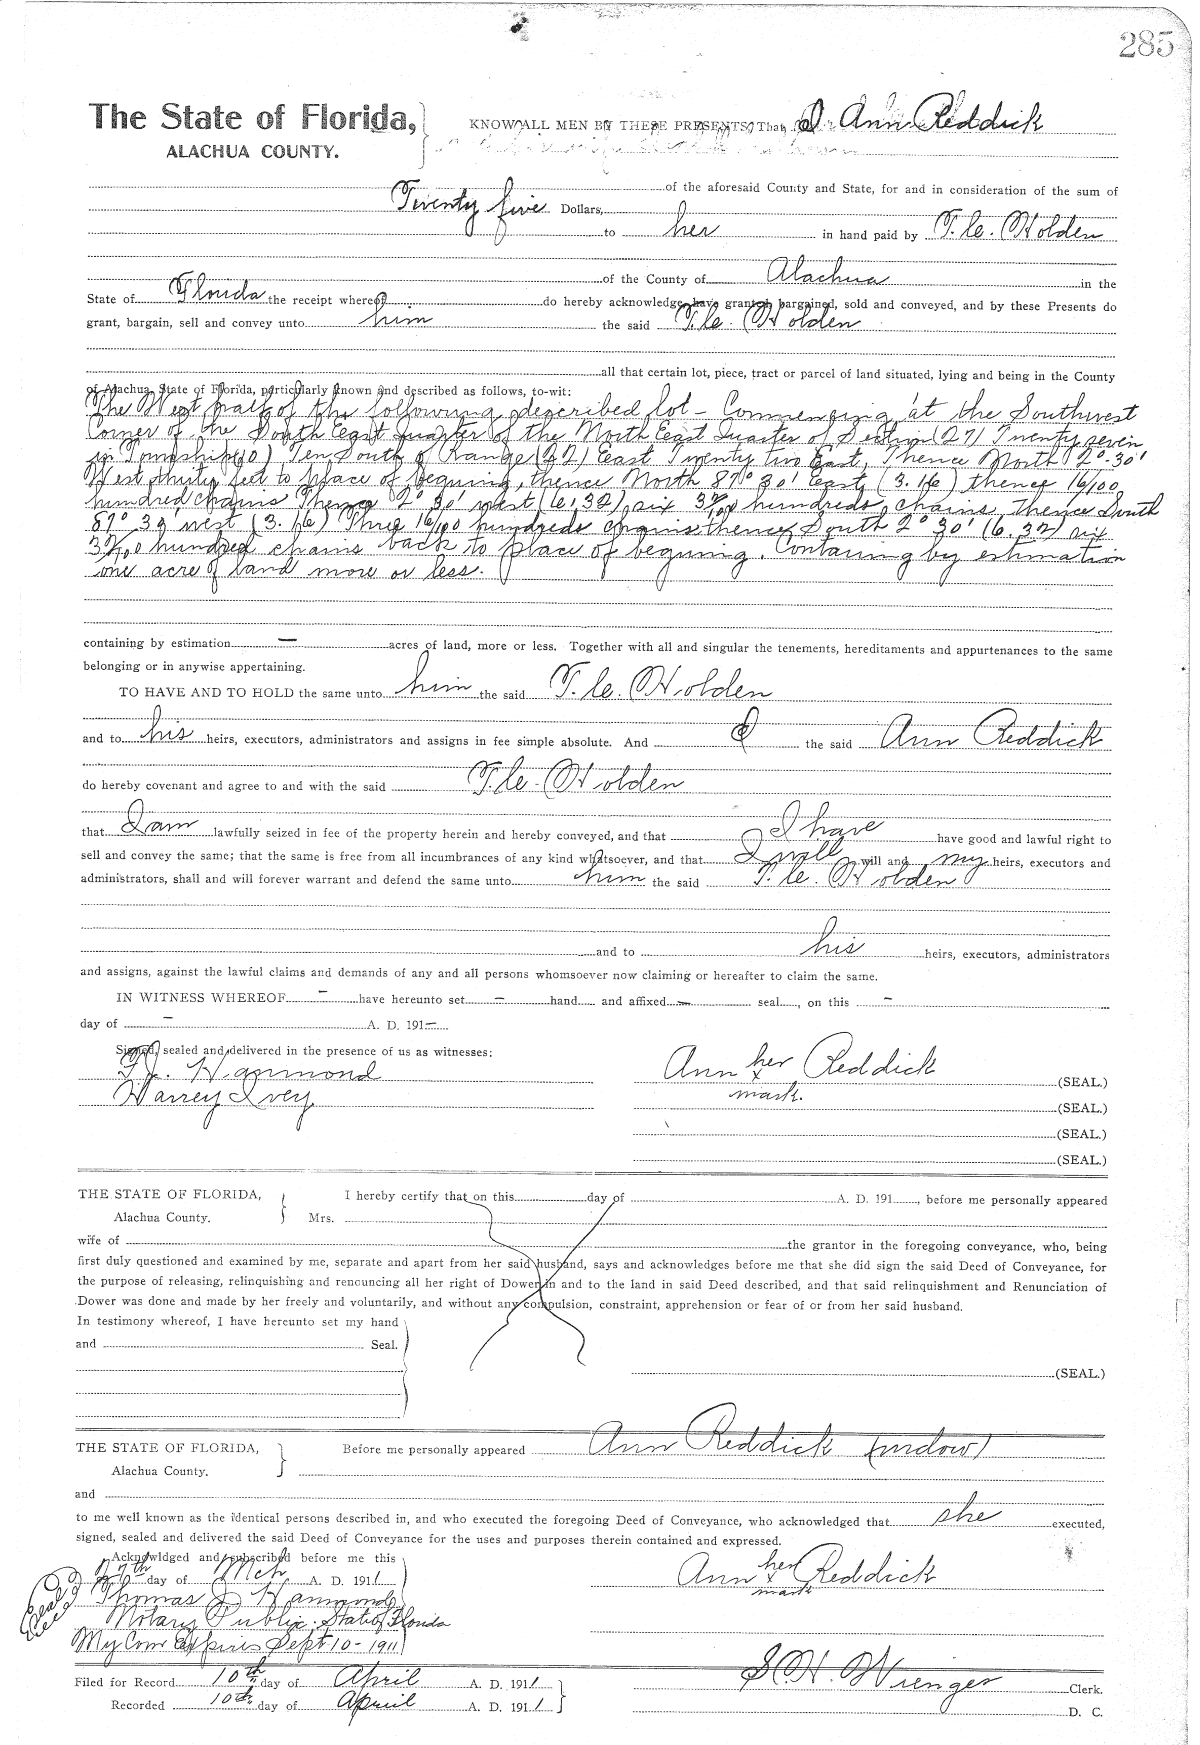 285
The State of Florida, KNOW ALL MEN BY THESE PRESENTS, That I Ann Reddick
ALACHUA COUNTY.
of the aforesaid County and State, for and in consideration of the sum of
Twenty five Dollars,
to her in hand paid by T. C. Holden
of the County of Alachua in the
State of Florida the receipt whereof do hereby acknowledge, have granted, bargained, sold and conveyed, and by these Presents do
grant, bargain, sell and convey unto him the said T. C. Holden
all that certain lot, piece, tract or parcel of land situated, lying and being in the County
of Alachua, State of Florida, particularly known and described as follows, to-wit:
The West half of the following described lot - Commencing at the Southwest
Corner of the South East Quarter of the North East Quarter of Section (27) Twenty seven
in Township (10) Ten South of Range (22) East Twenty two East, Thence North 2° 30'
West thirty feet to place of begining, thence North 87° 30' East (3.16) thence 16/100
hundred chains Thence 2° 30' west (6,32) six 32/100 hundreds chains, thence South
87° 30' west (3.16) three 16/100 hundreds chains thence South 2° 30' (6.32) six
32/100 hundred chains back to place of begining. Containing by estimation
one acre of land more or less.
containing by estimation — acres of land, more or less. Together with all and singular the tenements, hereditaments and appurtenances to the same
belonging or in anywise appertaining.
TO HAVE AND TO HOLD the same unto him the said T. C. Holden
and to his heirs, executors, administrators and assigns in fee simple absolute. And I the said Ann Reddick
do hereby covenant and agree to and with the said T. C. Holden
that I am lawfully seized in fee of the property herein and hereby conveyed, and that I have have good and lawful right to
sell and convey the same; that the same is free from all incumbrances of any kind whatsoever, and that I will will and my heirs, executors and
administrators, shall and will forever warrant and defend the same unto him the said T. C. Holden
and to his heirs, executors, administrators
and assigns, against the lawful claims and demands of any and all persons whomsoever now claiming or hereafter to claim the same.
IN WITNESS WHEREOF — have hereunto set — hand and affixed — seal, on this —
day of — A. D. 191—
Signed, sealed and delivered in the presence of us as witnesses:
T. J. Hammond Ann her Reddick (SEAL.)
x
Harvey Ivey mark. (SEAL.)
(SEAL.)
(SEAL.)
THE STATE OF FLORIDA, I hereby certify that on this day of A. D. 191, before me personally appeared
Alachua County. Mrs.
wife of the grantor in the foregoing conveyance, who, being
first duly questioned and examined by me, separate and apart from her said husband, says and acknowledges before me that she did sign the said Deed of Conveyance, for
the purpose of releasing, relinquishing and renouncing all her right of Dower in and to the land in said Deed described, and that said relinquishment and Renunciation of
Dower was done and made by her freely and voluntarily, and without any compulsion, constraint, apprehension or fear of or from her said husband.
In testimony whereof, I have hereunto set my hand
and Seal.
(SEAL.)
THE STATE OF FLORIDA, Before me personally appeared Ann Reddick (widow)
Alachua County.
and
to me well known as the identical persons described in, and who executed the foregoing Deed of Conveyance, who acknowledged that she executed,
signed, sealed and delivered the said Deed of Conveyance for the uses and purposes therein contained and expressed.
Acknowldged and subscribed before me this
27th day of Mch A. D. 1911 Ann her Reddick
x
mark
Thomas J Hammond
Notary Public State of Florida
My Com Expires Sept 10-1911
Filed for Record 10th day of April A. D. 1911 S. H. Wienges Clerk.
Recorded 10th day of April A. D. 1911 D. C.